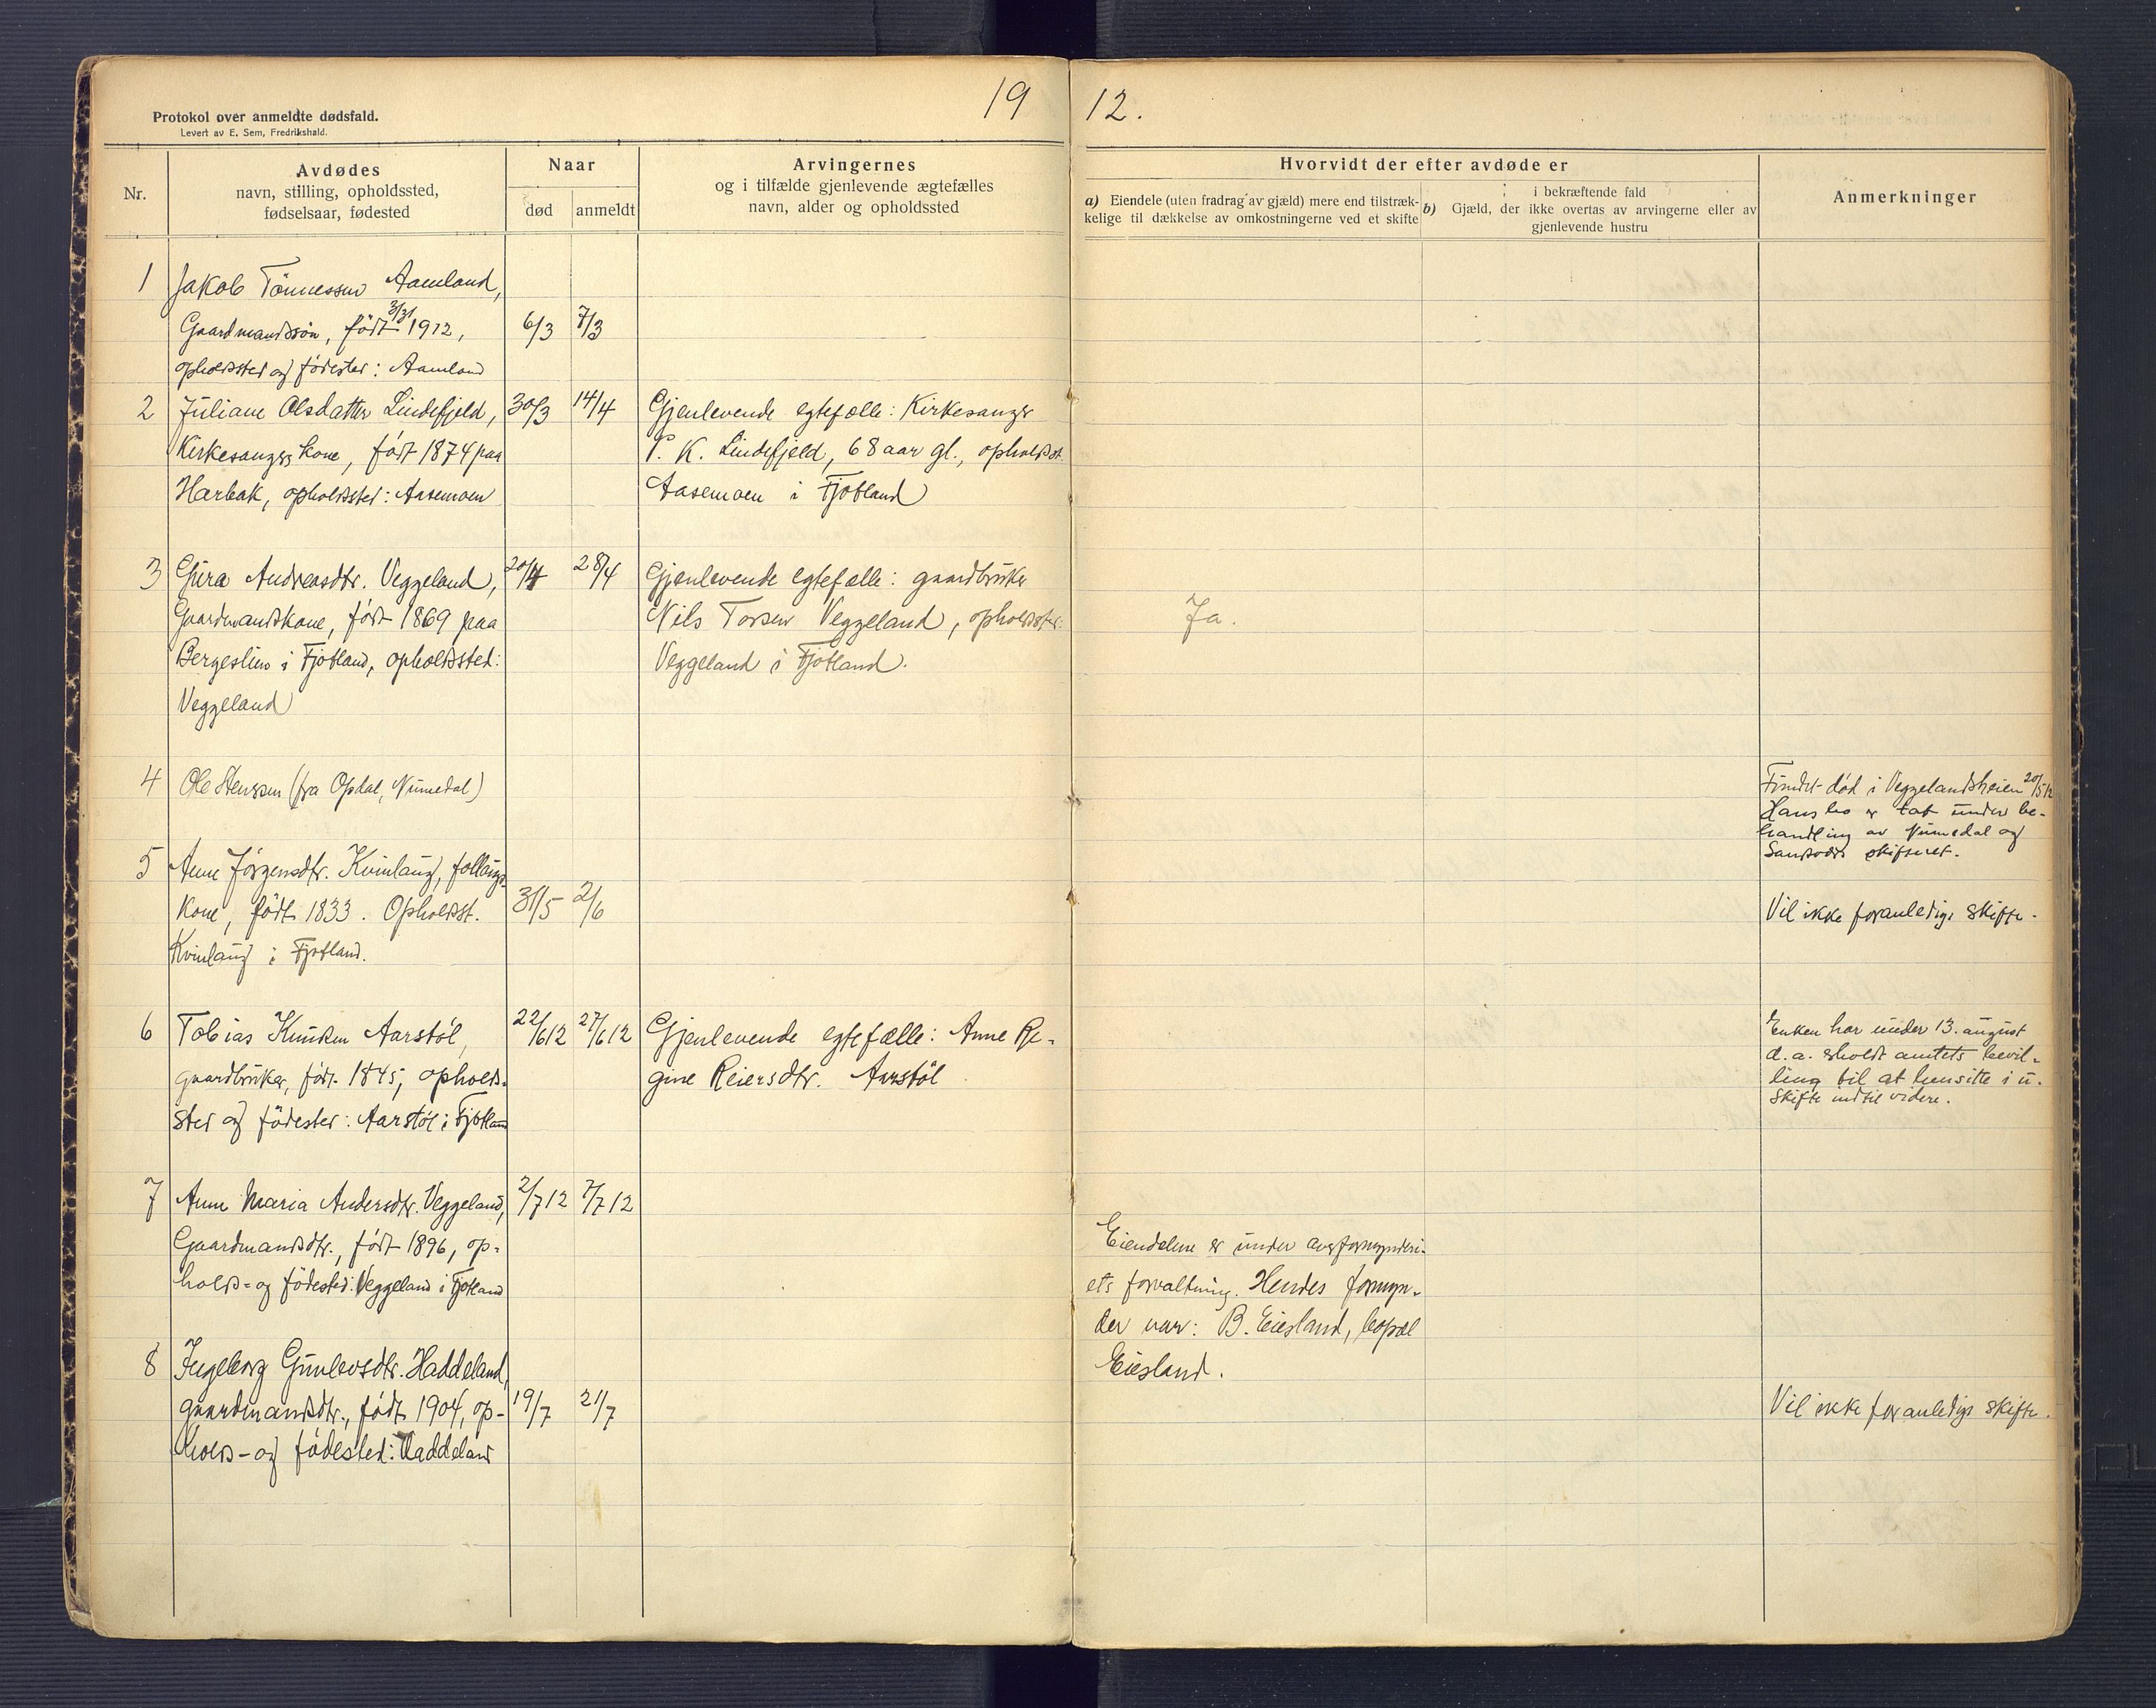 19 12.
Protokol over anmeldte dødsfald.
Levert av E. Sem, Fredrikshald.
Nr.
Avdødes
navn, stilling, opholdssted,
fødselsaar, fødested
Naar
død
anmeldt
Arvingernes
og i tilfælde gjenlevende ægtefælles
navn, alder og opholdssted
Hvorvidt der efter avdøde er
a) Eiendele (uten fradrag av gjæld) mere end tilstræk-
kelige til dækkelse av omkostningerne ved et skifte
i bekræftende fald
b) Gjæld, der ikke overtas av arvingerne eller av
gjenlevende hustru
Anmerkninger
1 Jakob Tönnessen Aamland,
Gaardmandssön, födt 3/31 1912, 6/3 7/3
opholdssted og födested: Aamland
2 Juliane Olsdatter Lindefjeld, 30/3 14/4 Gjenlevende egtefælle: Kirkesanger
Kirkesangers kone, födt 1874 paa P. K. Lindefjeld, 68 aar gl., opholdsst.
Harbak, opholdssted: Aasemoen Aasemoen i Fjotland
3 Gura Andreasdtr. Veggeland, 20/4 28/4 Gjenlevende egtefælle: gaardbruker
Gaardmandskone, födt 1869 paa Nils Torsen Veggeland, opholdssted: Ja.
Bergeslien i Fjotland, opholdssted: Veggeland i Fjotland.
Veggeland
4 Ole Stensen (fra Opdal, Numedal) Fundet död i Veggelandsheien 20/5 12
Hans bo er tat under be-
handling av Numedal og
Sandsvær skifteret.
5 Anne Jörgensdtr. Kvinlaug, föllaugs-
kone, födt 1833. Opholdsst. 31/5 2/6 Vil ikke foranledige skifte.
Kvinlaug i Fjotland.
6 Tobias Knudsen Aarstöl, 22/6 12 27/6 12 Gjenlevende egtefælle: Anne Re-
gaardbruker, födt 1845, opholds- gine Reiersdtr. Aarstöl
sted og födested: Aarstöl i Fjotland
Enken har under 13. august
d. a. erholdt amtets bevil-
ling til at hensitte i u-
skifte indtil videre.
7 Anne Maria Andersdtr. Veggeland, 2/7 12 7/7 12
Gaardmandsdtr., födt 1896, op-
holds- og födested: Veggeland i Fjotland
Eiendelene er under overformynderi-
ets forvaltning. Hendes formyn-
der var: B. Eiesland, bopæl
Eiesland.
8 Ingeborg Gunlevsdtr. Haddeland,
gaardmandsdtr., födt 1904, op- 19/7 21/7 Vil ikke foranledige skifte.
holds- og födested: Haddeland